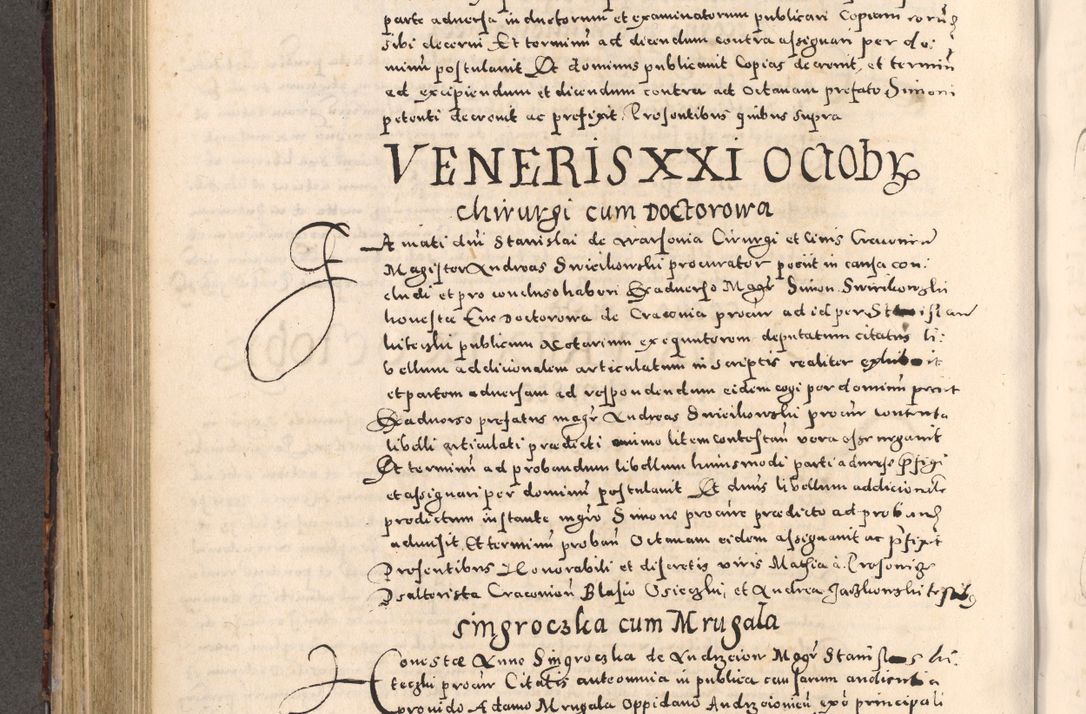 parte adversa inductorum et examinatorum publicari Copiam eorunq
sibi decerni Et terminu ad dicendum contra assignari per do:
minu postulauit Et dominus publicauit Copias decreuit, et terminu
ad excipiendum et dicendum contra ad Octauam prefato Simoni
petenti decreuit ac prefixit. Presentibus quibus supra
VENERIS XXI OCtobr
Chirurgi cum Doctorowa
Famati dni Stanislai de Warsouia Cirurgi et Ciuis Cracouien
Magister Andreas Swiecikowski procurator petit in causa con:
cludi et pro concluso haberi Ex aduerso Magr Simon
honestæ Euæ Doctorowa de Cracouia procur ad id per Stanislau
biteczki publicum Notarium exequutorem deputatum citatus li:
bellum addicionalem articulatum in scriptis realiter exhibuit
et partem aduersam ad respondendum eidem cogi per dominu petiit
Ex aduerso prefatus magr Andreas Swiecikowski procur contenta
libelli articulati prædicti animo litem contestan vera esse negauit
Et terminu ad probandum libellum huiusmodi parti aduerse pfigi
et assignari per dominu postulauit Et dnus libellum addicionale
predictum instante mgro Simone procure prædicto ad proband
admisit, Et terminu proban Octauam eidem assignauit ac pfixit
Presentibus Honorabili et discretis viris Mathia à
Psalterista Cracouien Blasio et Andrea Jaszkowski testibq
Singroczka cum Mrugala
Honestæ Annæ Singroczka de Andrzeiow Magr Stanislaus bi:
teczki procur Citatis auteomnia in publica causarum audientia
prouido Adamo Mrugala Oppidano Andrzeiouien exo principali